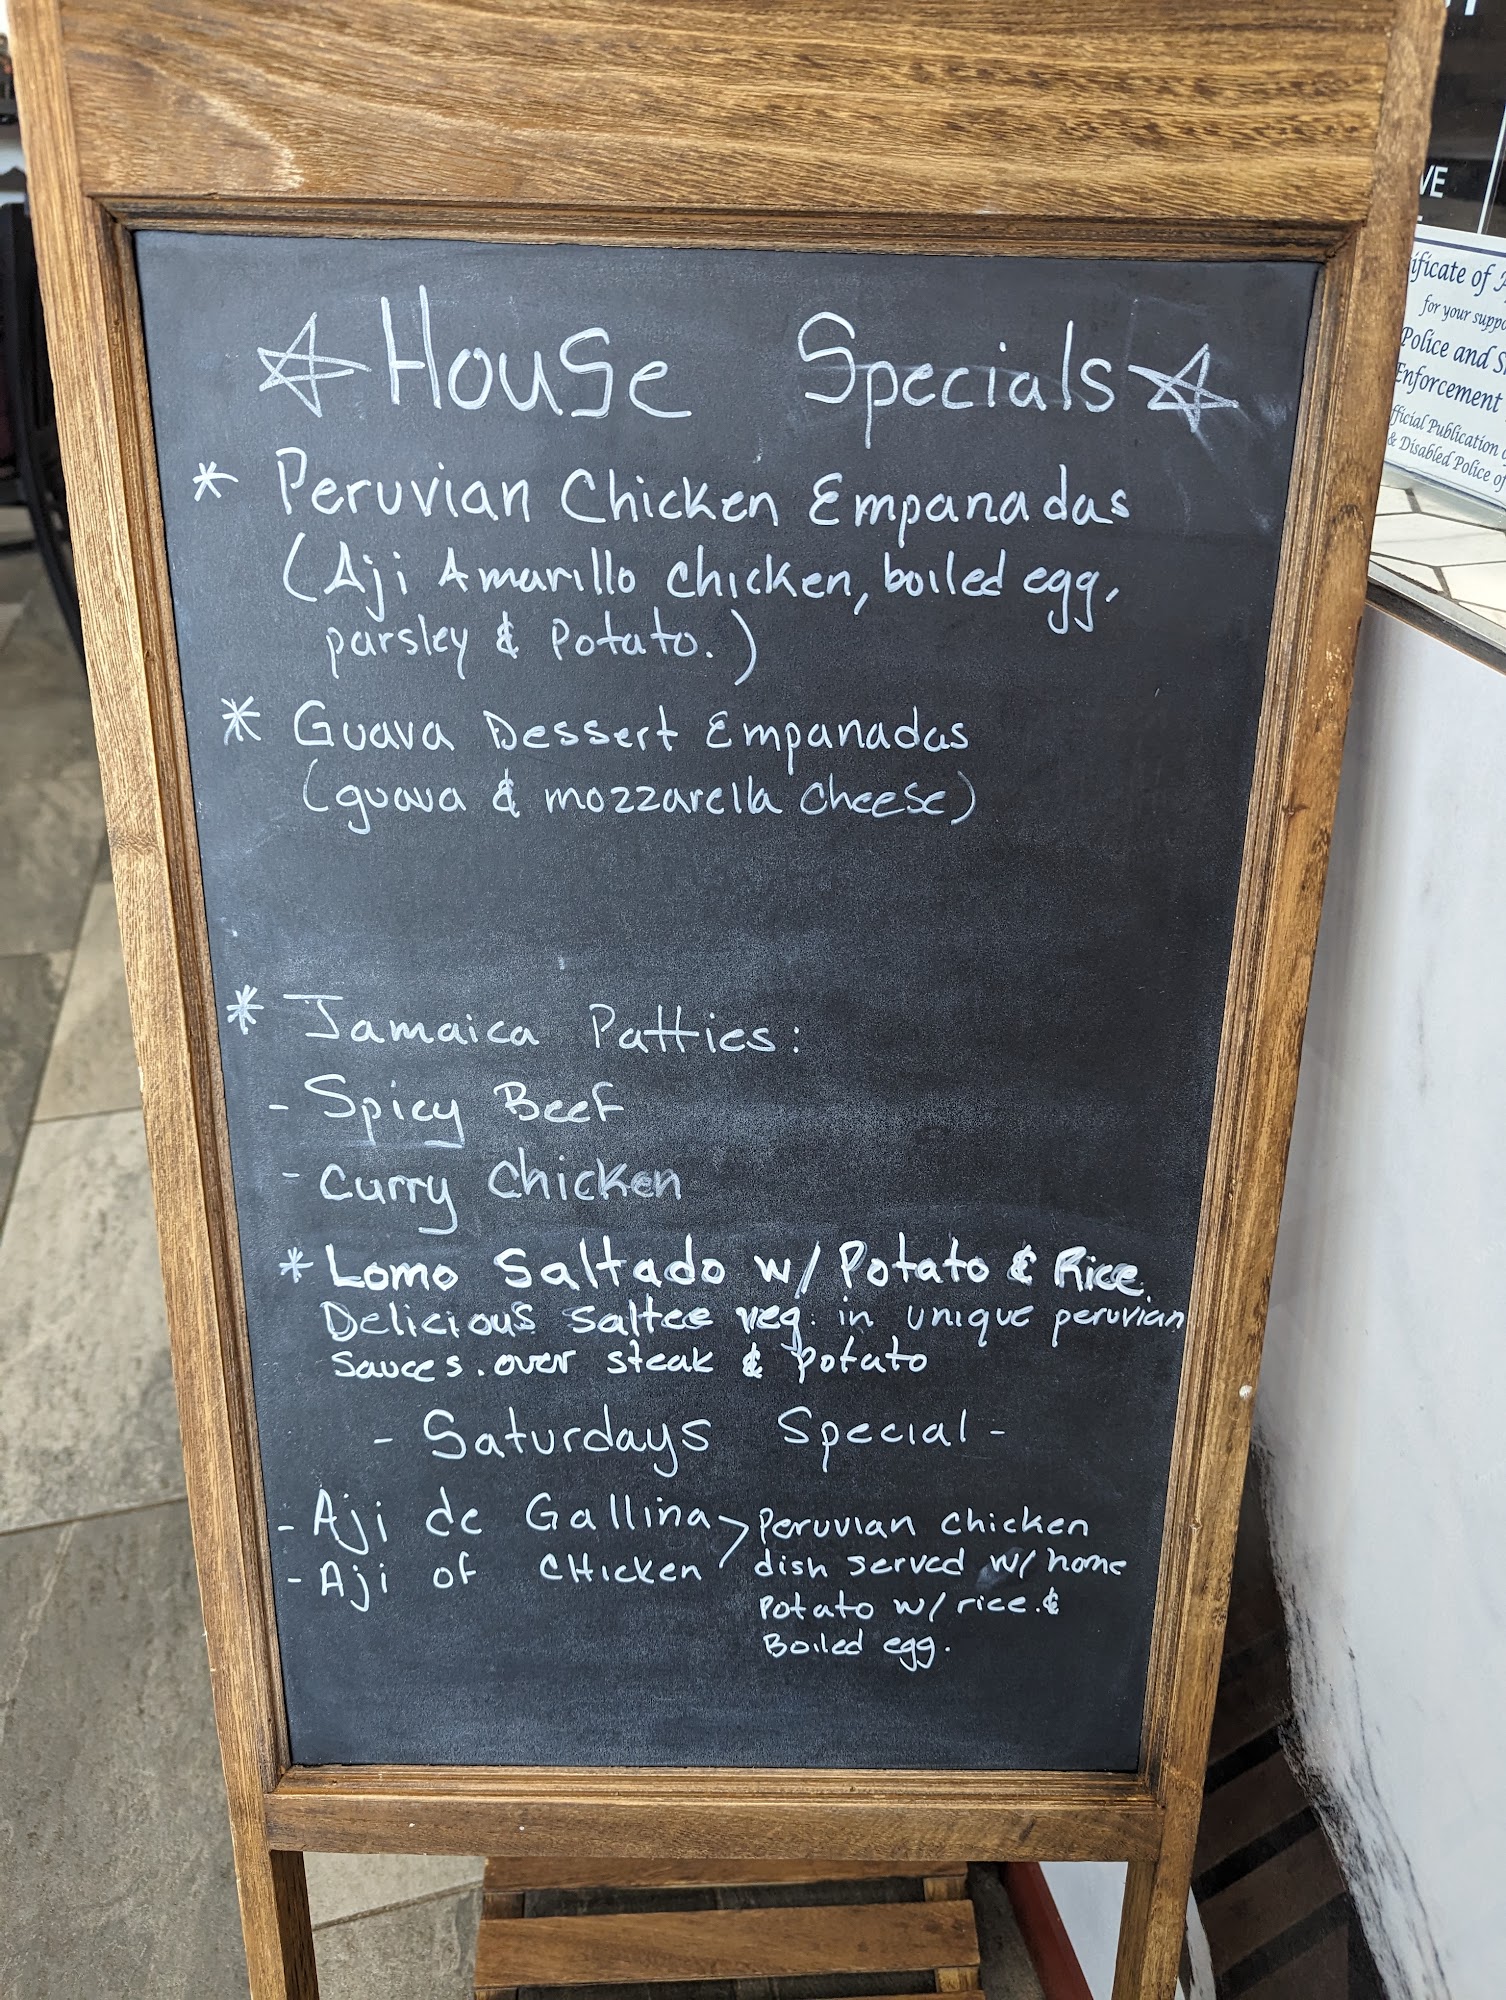 ☆ House Specials ☆
* Peruvian Chicken Empanadas
(Aji Amarillo chicken, boiled egg,
parsley & Potato.)
* Guava Dessert Empanadas
(guava & mozzarella cheese)
* Jamaica Patties:
- Spicy Beef
- Curry Chicken
* Lomo Saltado w/ Potato & Rice.
Delicious saltee veg. in unique peruvian
sauces. over steak & potato
- Saturdays Special -
- Aji de Gallina > Peruvian chicken
- Aji of CHicken dish served w/ home
Potato w/ rice. &
Boiled egg.
VE
ificate of
for your
Police and
Enforcement
fficial Publication
& Disabled Police of